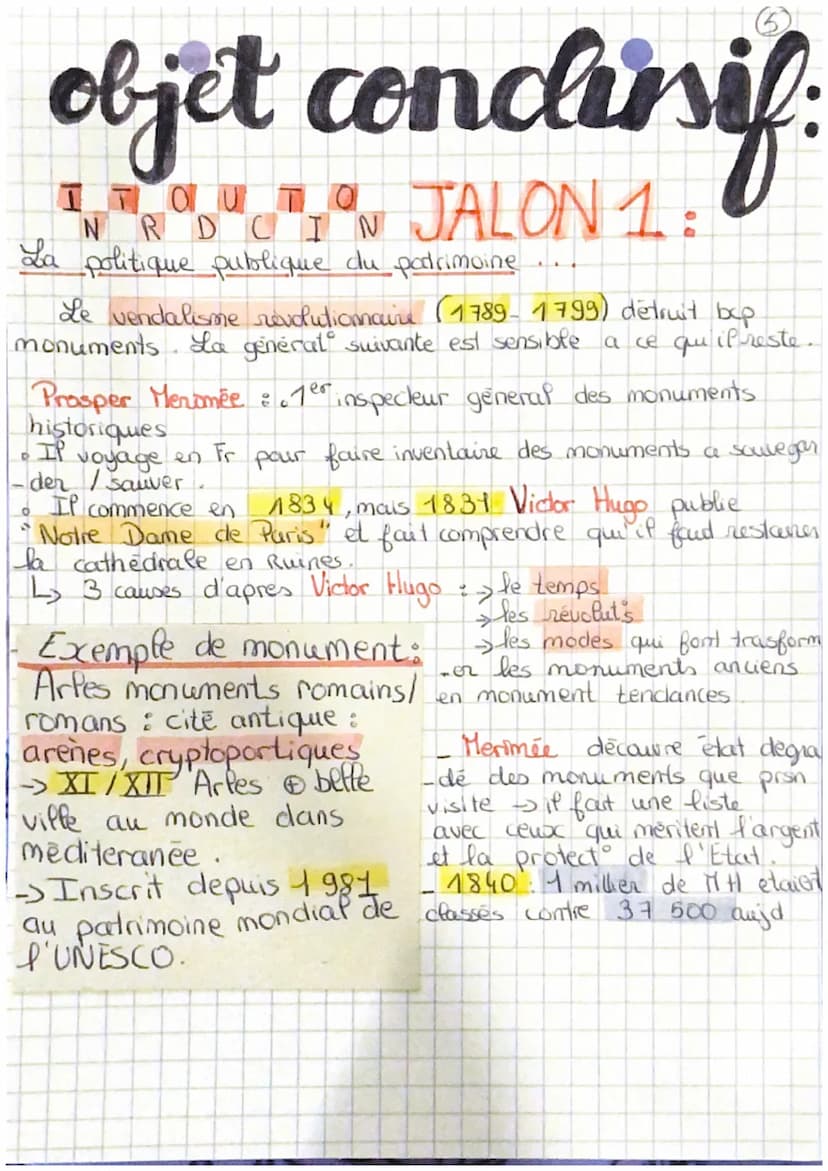 5
objet conclusif:
INTRODUCTION JALON 1 :
La politique publique du patrimoine ...
Le vendalisme révolutionnaire (1789-1799) détruit bcp
monuments. La générat° suivante est sensible a ce qu'il reste.
Prosper Meromée : . 1er inspecteur général des monuments
historiques
• Il voyage en Fr pour faire inventaire des monuments a sauvegar
-der / sauver.
• Il commence en 1834, mais 1831 Victor Hugo publie
"Notre Dame de Paris" et fait comprendre qu'il faud restaurer
la cathédrale en Ruines.
↳ 3 causes d'apres Victor Hugo : → le temps
→ les révolut°s
→ les modes qui font trasform
-er les monuments anciens
en monument tendances
- Exemple de monument:
Arles monuments romains/
romans : cité antique :
arènes, cryptoportiques
-> XI / XII Arles ⊕ belle
ville au monde dans
méditeranée.
-> Inscrit depuis 1981
au patrimoine mondial de
l'UNESCO.
- Merimée découvre état dégra
-dé des monuments que prsn
visite → il fait une liste
avec ceux qui méritent l'argent
et la protect° de l'Etat.
- 1840 : 1 millier de MH etaient
classés contre 37 500 aujd